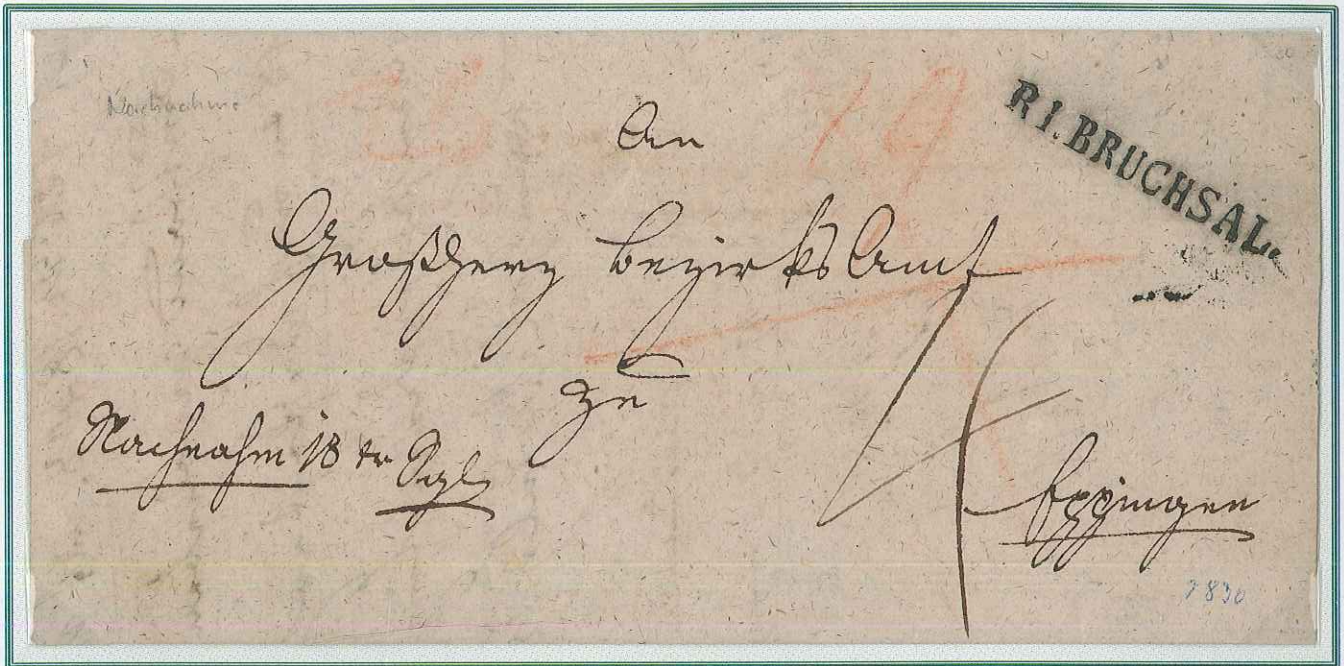 Nachnahme
An
R 1. BRUCHSAL.
Großherz Bezirks Amt
zu
Nachnahm 18 xr
Eppingen
1830